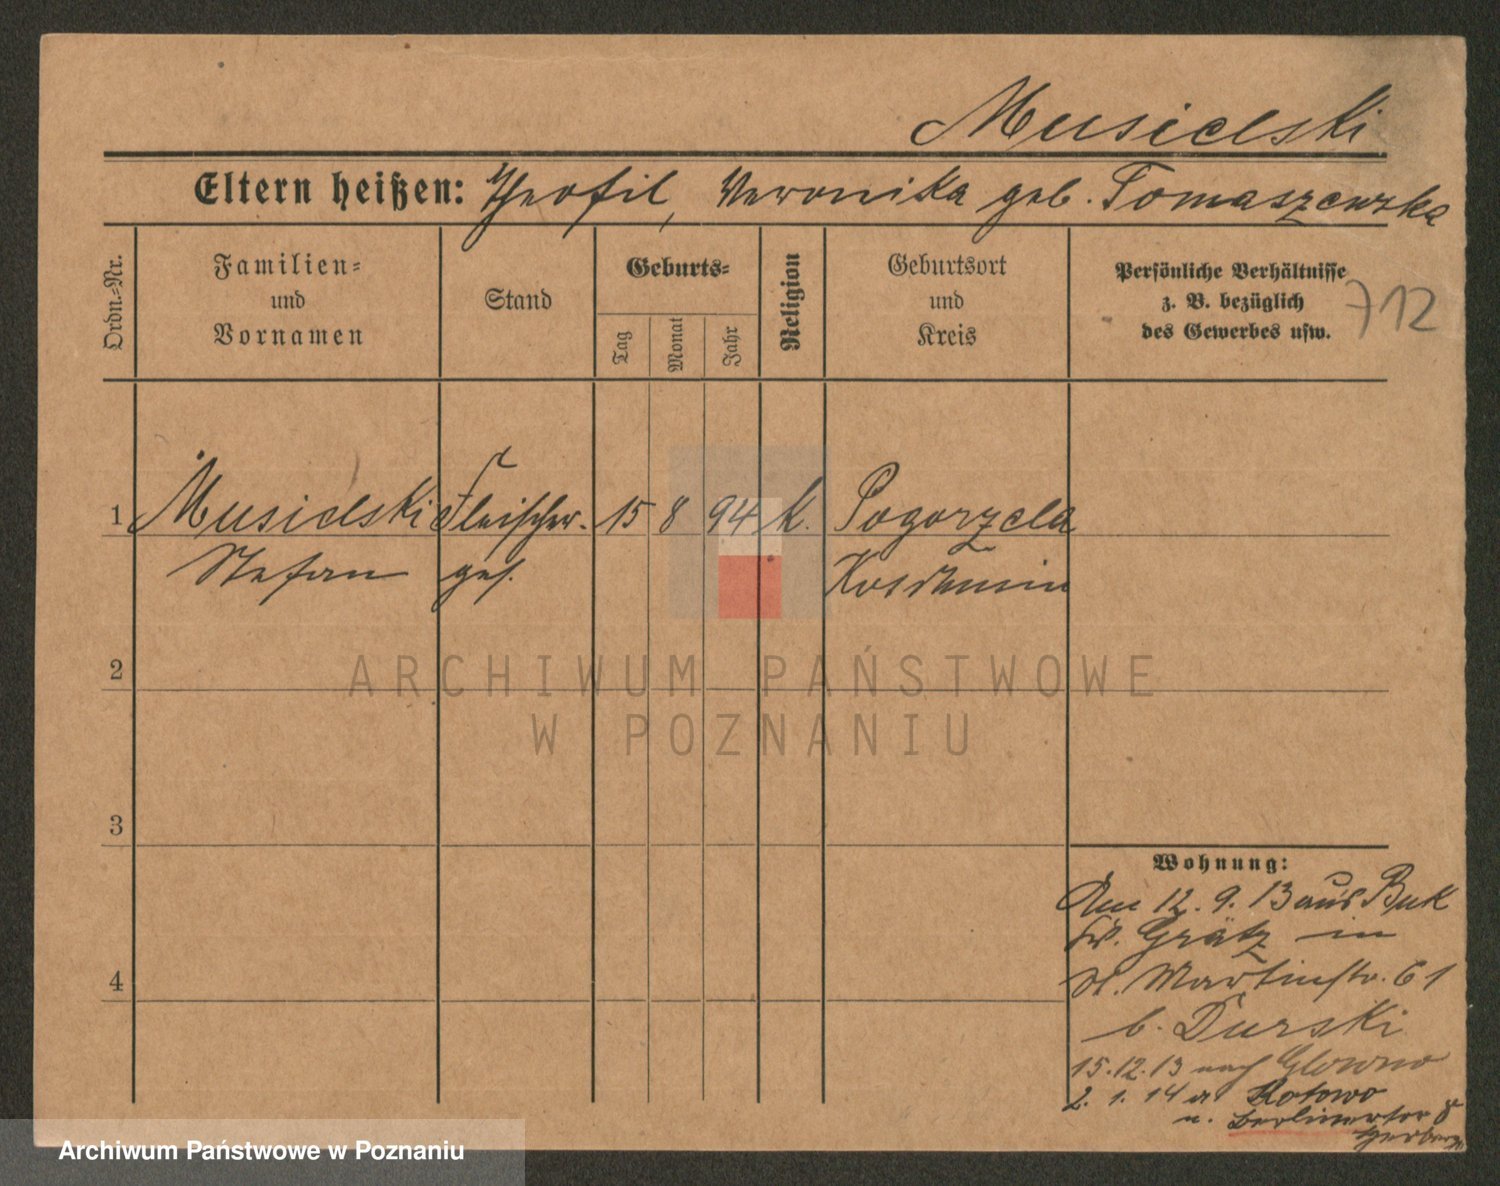 Musielski
Eltern heißen: Theofil, Veronika geb. Tomaszewska
Ordn.-Nr.
Familien-
und
Vornamen
Stand
Geburts-
Tag
Monat
Jahr
Religion
Geburtsort
und
Kreis
Persönliche Verhältnisse
z. B. bezüglich
des Gewerbes usw.
712
1 Musielski Fleischer- 15 8 94 K. Pogorzela
Stefan ges. Koschmin
2
3
4
Wohnung:
Am 12. 9. 13 aus Buk
Kr. Grätz in
St. Martinstr. 61
b. Durski
15.12.13 nach Glowno
2. 1. 14 Kotowo
n. Berlinertor 8
ARCHIWUM PAŃSTWOWE
W POZNANIU
Archiwum Państwowe w Poznaniu